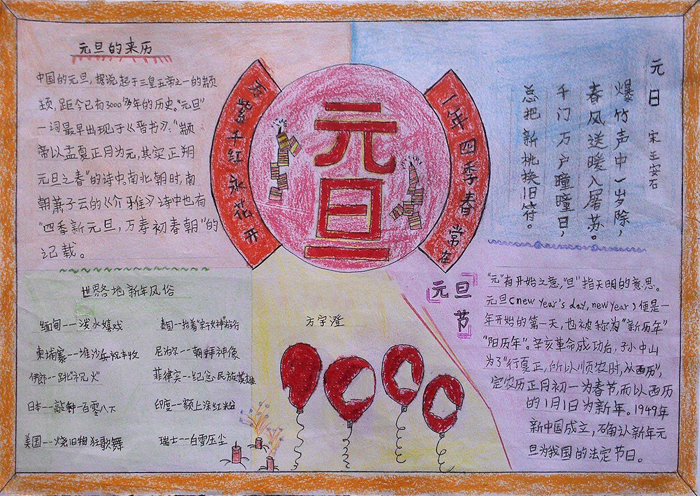 元旦的来历
中国的元旦，据说起于三皇五帝之一的颛
顼，距今已有3000多年的历史。“元旦”
一词最早出现于《晋书》。“颛
帝以孟夏正月为元，其实正朔
元旦之春”的诗中。南北朝时，南
朝萧子云的《介雅》诗中也有
“四季新元旦，万寿初春朝”的
记载。
万紫千红永花开
元旦
一年四季春常在
元日
宋 王安石
爆竹声中一岁除，
春风送暖入屠苏。
千门万户曈曈日，
总把新桃换旧符。
世界各地新年风俗
缅甸--泼水嬉戏
泰国--抬着“宋干女神”游行
柬埔寨--堆沙
尼泊尔--朝拜神像
伊朗--跳
火
菲律宾--纪念民族英雄
日本--敲钟一百零八下
印度--额上涂红粉
美国--烧旧相狂歌舞
瑞士--白雪压尘
方宇澄
元旦节
“元”有开始之意，“旦”指天明的意思。
元旦(new year's day, new year)便是一
年开始的第一天，也被称为“新历年”
“阳历年”。辛亥革命成功后，孙中山
为了“行夏正，所以顺农时，从西历”，
定农历正月初一为春节，而以西历
的1月1日为新年。1949年
新中国成立，确认新年元
旦为我国的法定节日。